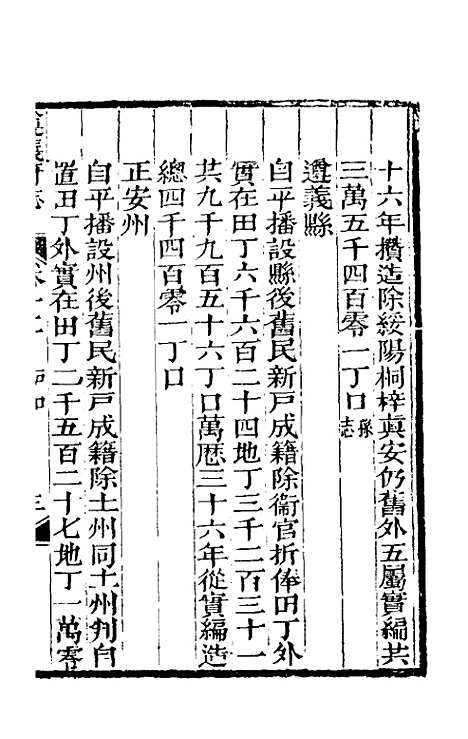 十六年攢造除綏陽桐梓眞安仍舊外五屬實編共
三萬五千四百零一丁口孫志
遵義縣
自平播設縣後舊民新戸成籍除衞官折俸田丁外
實在田丁六千六百二十四地丁三千二百三十一
共九千九百五十六丁口萬歷三十六年從實編造
總四千四百零一丁口
正安州
自平播設州後舊民新戸成籍除土州同土州判自
置田丁外實在田丁二千五百二十七地丁一萬零
遵義府志